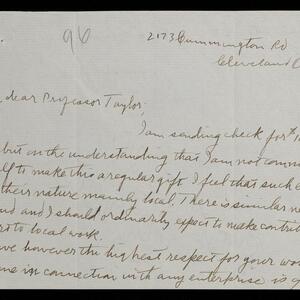 96
2173 Cummington Rd
Cleveland O
dear Professor Taylor;
I am sending check for $1
but on the understanding that I am not comm
lf to make this a regular gift. I feel that such e
their nature mainly local. There is similar ne
nd and I should ordinarily expect to make contrib
rs to local work.
ve however the highest respect for your wor
me in connection with any enterprise is g